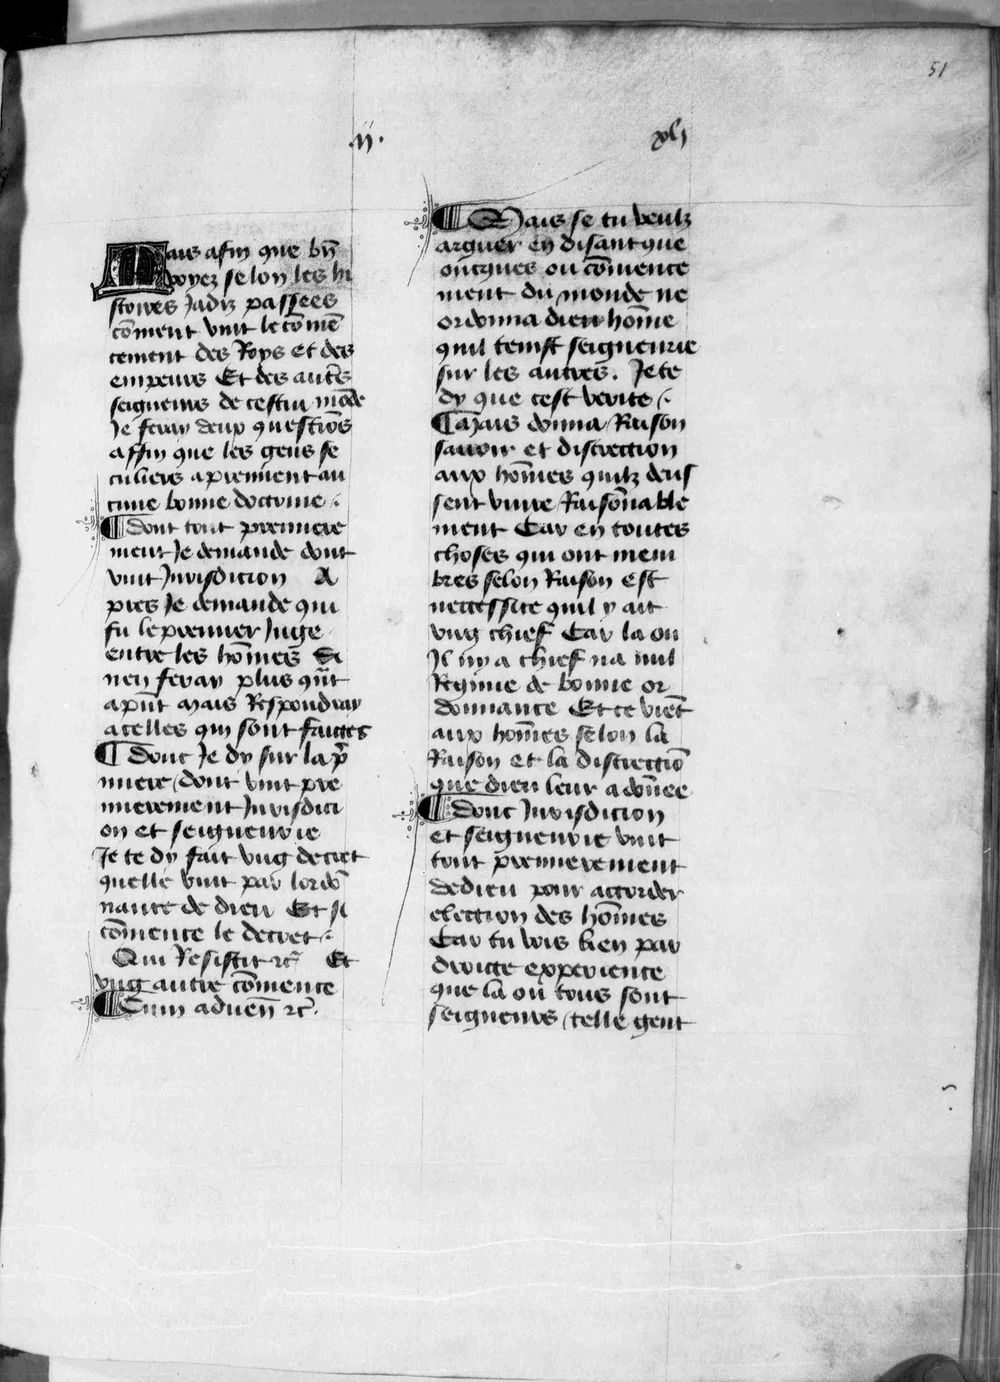 51
.ii.
xli
Mais afin que bn̄
voyez selon les hi
stoires Jadiz passees
cōment vint le cōmē
cement des Roys et des
empeurs Et des autēs
seigneurs de cestui mōde
Je feray deux questiōs
affin que les gens se
culiers aprennent au
cune bonne doctrine
¶ Dont tout premiere
ment Je demande dont
vint Jurisdicion A
pres Je demande qui
fu le premier Juge
entre les hōmes Si
nen feray plus qūt
apn̄t mais Respondray
acelles qui sont faictes
¶ Donc Je dy sur la pr̄
miere / dont vint pre
mierement Jurisdici
on et seigneurie
Je te dy fait vng decret
quelle vint par lordō
nance de dieu Et si
cōmence le decret
Qui Resistit ⁊c̄ Et
vng autre cōmence
¶ Cum aduen̄ ⁊c̄.
¶ Mais se tu veulz
arguer en disant que
oncques ou cōmence
ment du monde ne
ordonna dieu hōme
quil tenist seigneurie
sur les autres. Je te
dy que cest verite
¶ Mais donna Raison
sauoir et discrection
aux hōmes quilz deus
sent viure Raisōnable
ment Car en toutes
choses qui ont mem
bres selon Raison est
neccessite quil y ait
vng chief Car la ou
Il ny a chief na nul
Regime de bonne or
donnance Et ce viēt
aux hōmes selon la
Raison et la discrectiō
que dieu leur a dōnee
¶ Donc Jurisdicion
et seigneurie vint
tout premierement
de dieu pour accorder
election des hōmes
Car tu vois bien par
droicte experience
que la ou tous sont
seigneurs / celle gent